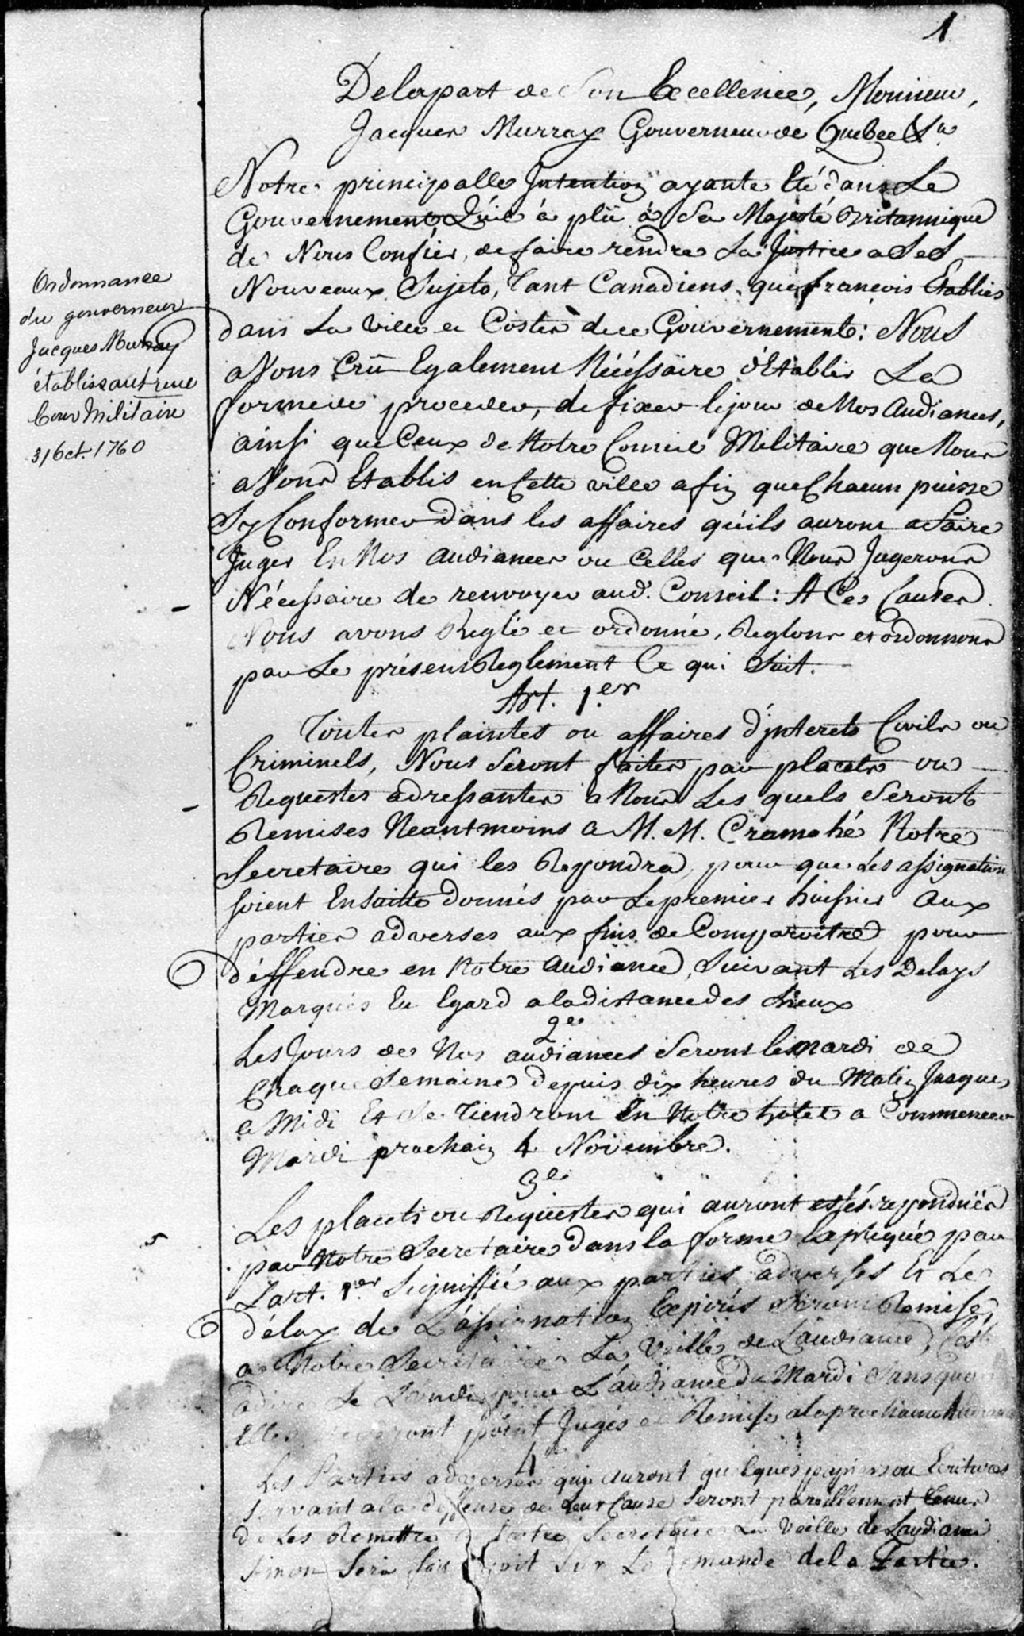 1
De la part de Son Excellence, Monsieur,
Jacques Murray Gouverneur de Quebec &a
Notre principalle Intention ayante Eté dans Le
Gouvernement Qu'il à plû à Sa Majesté Britannique
de Nous Confier, de faire rendre La Justice a Ses
Nouveaux Sujets, Tant Canadiens que françois Etablies
dans La ville et Costes de ce Gouvernement: Nous
avons Crû Egalement Nécéssaire d'Etablir La
forme de proceder, de fixer le jour de Nos Audiances,
ainsi que Ceux de Notre Conseil Militaire que Nous
avons Etablis en Cette ville afin que Chacun puisse
Sy Conformer dans les affaires qu'ils auront a Faire
Juger En Nos audiances ou Celles que Nous Jugerons
Nécessaire de renvoyer aud. Conseil: A Ces Causes
Nous avons Reglé et ordonné, Reglons et ordonnons
par Le présent Reglement Ce qui Suit.
Art. 1.er
Toutes plaintes ou affaires d'Interets Civils ou
Criminels, Nous Seront faites par placets ou
Requestes adressantes a Nous Les quels Seront
Remises Neantmoins a M. M. Cramahé Notre
Secretaire qui les Repondra, pour que Les assignations
soient Ensuitte donnés par Le premier huissier Aux
parties adverses aux fins de Comparoitre pour
déffendre en Notre Audiance, Suivant Les Delays
Marqués Eu Egard a la distance des Lieux
2e
Les Jours de Nos audiances Seront le mardi de
Chaque Semaine depuis dix heures du Matin Jusques
a Midi Et se Tiendront En Notre hotel a Commencer
Mardi prochain 4 Novembre.
3e
Les placets ou Requestes qui auront estés repondües
par Notre Secretaire dans la forme Expliquée par
L'art. 1er Signiffié aux parties adverses Et Le
délay de L'assignation Expirés Seront Remises
a Notre Secretaire La Veille de L'audiance, Cest
adire Le Lundi pour L'audiance du Mardi Sans quoi
Elles Seront point Jugés et Remises a la prochaine Audiance
4e
Les Parties adverses qui auront quelques papiers ou Ecritures
Servant a la deffense de Leur Cause Seront pareillement tenus
de Les Remettre a Notre Secretaire La Veille de Laudiance
Sinon Sera fait droit Sur La Demande de la Partie.
Ordonnance
du gouverneur
Jacques Murray
établissant une
Cour Militaire
31 Oct. 1760